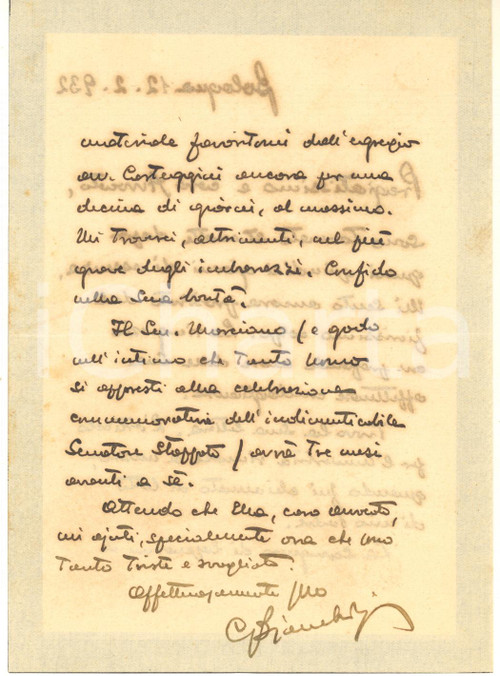 Bologna 12.2.932
materiale favoritomi dall'egregio
avv. Casteggini ancora per una
decina di giorni, al massimo.
Mi troverei, altrimenti, nel più
grave degli imbarazzi. Confido
nella Sua bontà.
Il Sen. Morciano / e godo
nell'intimo che tanto uomo
si appresti alla celebrazione
commemorativa dell'indimenticabile
Senatore Stoppato / avrà tre mesi
avanti a sè.
Attendo che Ella, caro avvocato,
mi ajuti, specialmente ora che sono
tanto triste e svogliato.
Affettuosamente Suo